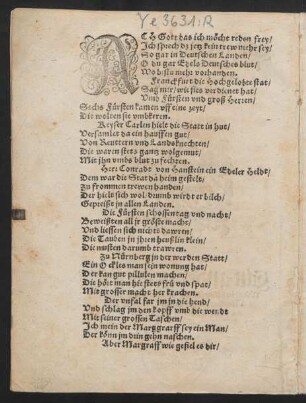 Ye 3631:R
ACH Gott das ich möcht reden frey/
Ich sprech ds jetz kein trew mehr sey/
So gar in Deutschen Landen/
O du gar Edels Deutsches blut/
Wo bistu mehr vorhanden.
Franckfurt die Hochgelobte stat/
Sag mir/ wie sies verdienet hat/
Vmb Fürsten vnd groß Herren/
Sechs Fürsten kamen vff eine zeyt/
Die wolten sie vmbkeren.
Keyser Carlen hielt die Statt in hut/
Versamlet da ein hauffen gut/
Von Reuttern vnd Landsknechten/
Die waren stets gantz wolgemut/
Mit jhn vmbs blut zu fechten.
Herr Conradt von Hanstein ein Edeler Heldt/
Dem war die Stat da heim gestelt/
Zu frommen trewen handen/
Der hielt sich wol/ drumb wirdt er bilch/
Gepreißt in allen Landen.
Die Fürsten schossen tag vnd nacht/
Beweißten all jr gröste macht/
Vnd liessen sich nicht dawren/
Die Tauben in jhren heußlin klein/
Die musten darumb trawren.
Zu Nürnberg in der werden Statt/
Ein Ockles man sein wonung hat/
Der kan gut pillulen machen/
Die hört man hie stets frü vnd spat/
Mit grosser macht her krachen.
Der vnfal far jm in die hend/
Vnd schlag jm den kopff vmb die wend/
Mit seiner grossen Taschen/
Ich mein der Marggrarff sey ein Man/
Der könn jm drin gehn naschen.
Aber Margraff wie gefiel es dir/